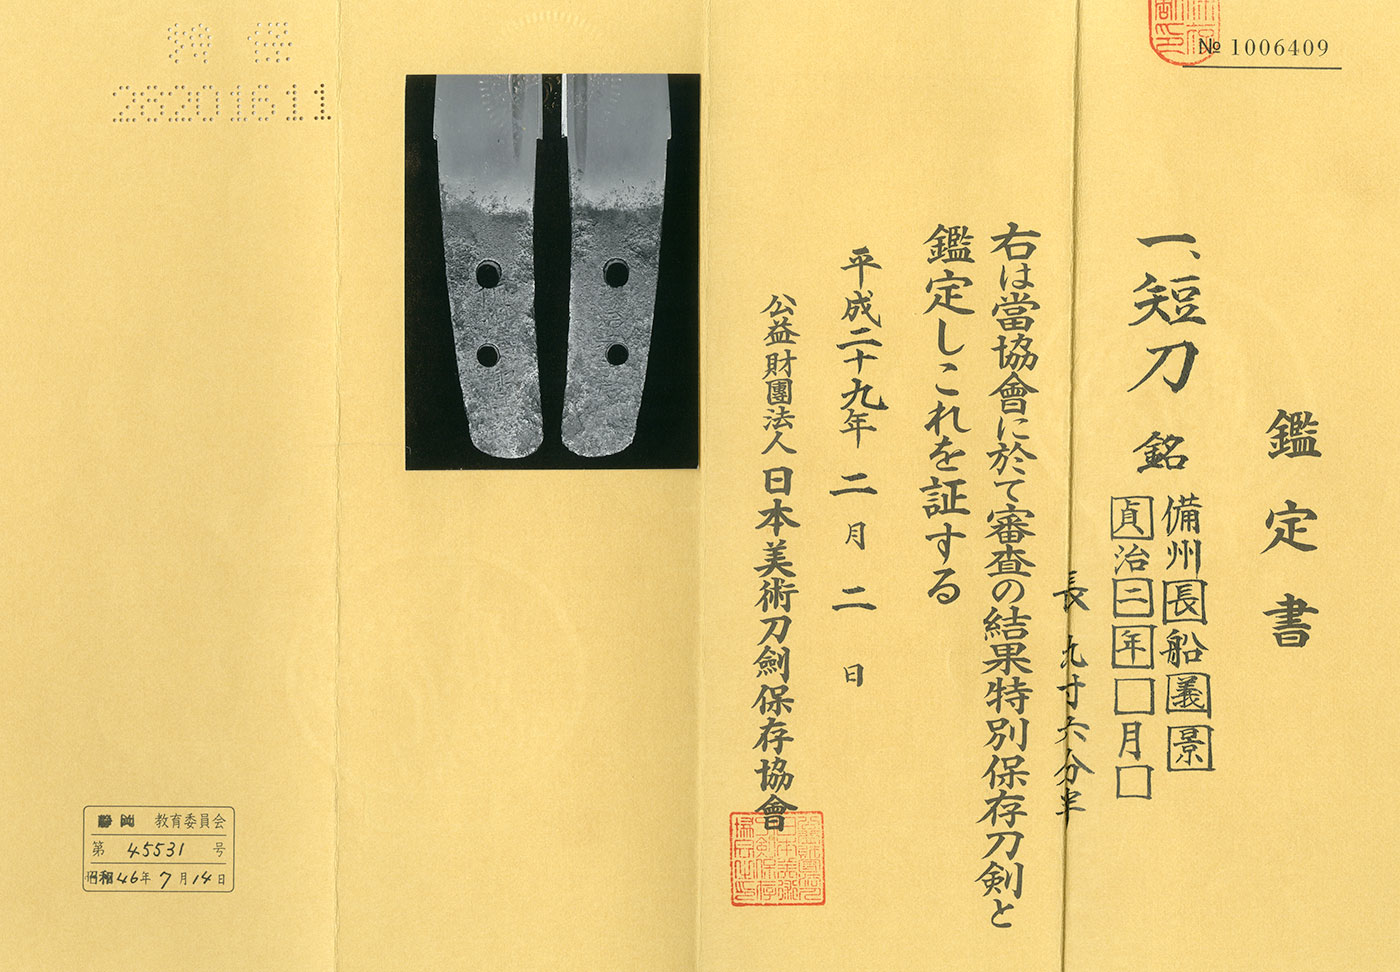 № 1006409
鑑定書
一、短刀 銘 備州長船義景
貞治二年□月□
長 九寸六分半
右は當協會に於て審査の結果特別保存刀剣と
鑑定しこれを証する
平成二十九年 二月 二日
公益財團法人 日本美術刀劍保存協會
28201611
静岡 教育委員会
第 45531 号
昭和46年7月14日